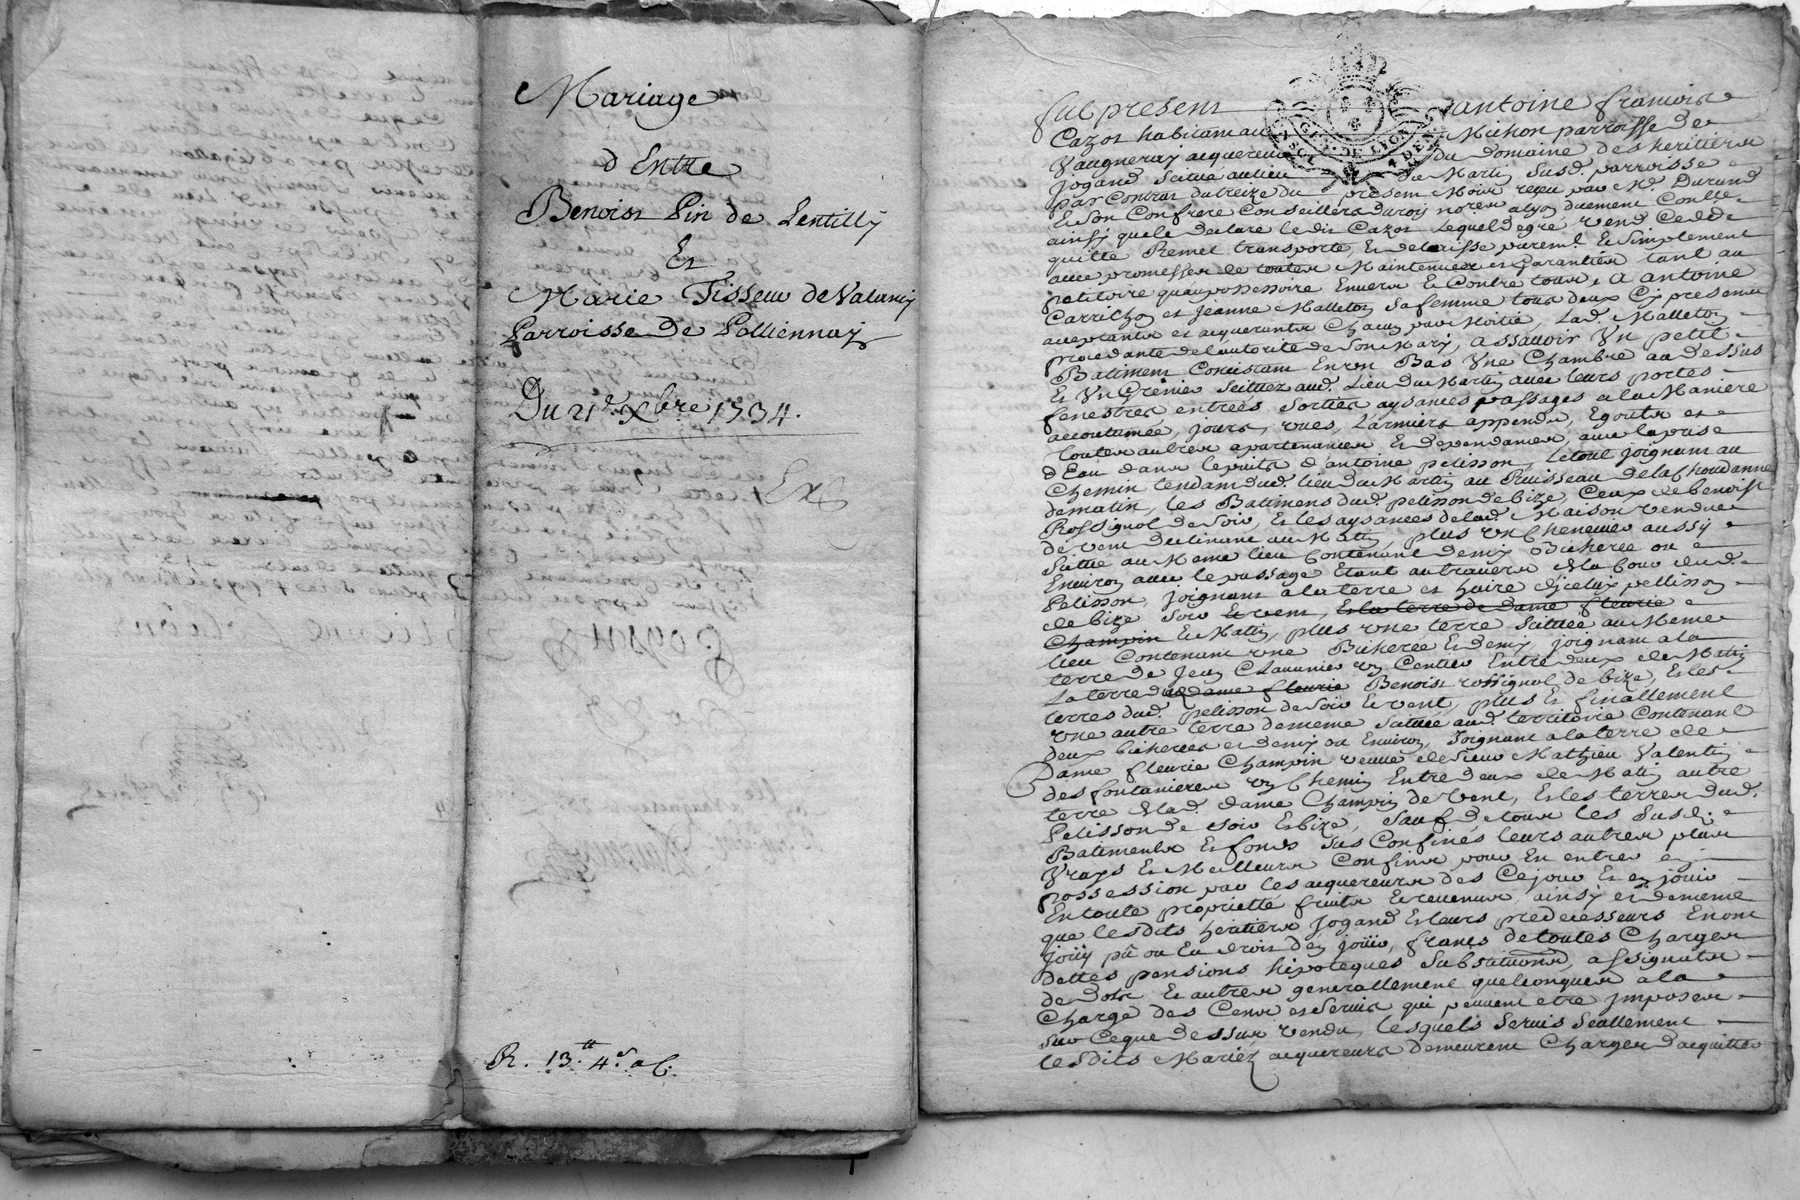 Mariage
d'Entre
Benoist Pin de Lentilly
Et
Marie Tisseur de Valancy
Parroisse de Pollionnay
Du 21e. Xbre 1734.
Ex
R. 13tt 4s
fut present antoine francois
Cazot habitant au Michon parroisse de
Vaugneray acquereur du Domaine des heritiers
Jogand Scitué au lieu du Martin Susd. parroisse
par Contrat du treize du present Mois reçu par Me. Durand
Et Son Confrere Conseillers du roy no.res a lyon duement Conllé
ainsy que le declare le dit Cazot Lequel de gré vend Cedde
quitte Remet transporte, Et delaisse purem.t Et Simplement
avec promesses de toutes Maintenües et Garanties tant au
petitoire qu'au possessoire Envers Et Contre tous, A antoine
Carrichon et Jeanne Malleton Sa femme tous deux Cy presents
acceptants et acquerants Chacun pour Moitié, Lad. Malleton
procedante de l'autorité de Son Mary, a Ssavoir Un petit
Batiment Consistant En un Bas Une Chambre au dessus
Et Un Grenier Scituez aud. Lieu du Martin avec leurs portes
fenestres entrées Sorties aysances passages a la Maniere
accoutumée, Jours, vües, Larmiers appendis, Egouts et
toutes autres apartenances Et dependances, avec la prise
d'Eau dans le puits d'antoine pelisson, Le tout Joignant au
Chemin tendant dud. lieu du Martin au Ruisseau de la Choudanne
de matin, les Batimens dud. pelisson de bize, Ceux de benoist
Rossignol de Soir, Et les aysances de lad. Maison vendüe
de vent declinant au Matin, plus un Chenevier aussy
Scitué au Meme lieu Contenant demy Bicherée ou
Environ avec le passage Etant au travers de la Cour dud.
Pelisson, Joignant a la terre et haire d'icelui pellisson
de bize Soir Et vent, Et la terre de Dame fleurie
Champin Et Matin, plus une terre Scituée au Meme
lieu Contenant une Bicherée Et demy Joignant a la
terre de Jean Chaunier un Centier Entre deux de Matin
La terre dud Dame fleurie Benoist rossignol de bize, Et les
terres dud. pelisson de Soir Et vent, plus Et finallement
une autre terre de meme Scituée aud. territoire Contenant
deux bicherées et demy ou Environ, Joignant a la terre de
Dame fleurie Champin veuve de Sieur Mathieu Valentin
des fontanieres un Chemin Entre deux de Matin autre
terre de lad. dame Champin de vent, Et les terres dud.
Pelisson de Soir Et bize, Sauf de tous les Susd.
Batiments Et fonds Sus Confinés leurs autres plus
Vrays Et Meilleurs Confins pour En entrer en
possession par les acquereurs des Ce jour Et en joüir
En toute proprietté fruits Et revenus, ainsy et de meme
que lesdits heritiers Jogand Et leurs predecesseurs En ont
joüy pû ou Eu droit d'en joüir, francs de toutes Charges
dettes pensions hipoteques Substitutions, assignats
de Dots Et autres generallement quelconques a la
Charge des Cens et Servis qui peuvent etre Imposés
sur Ce que dessus vendu, lesquels Servis Seullement
lesdits Mariéz acquereurs demeurent Charges d'acquitter